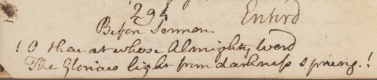 294 Enterd
Before Sermon.
1 O thou at whose Almighty Word
The Glorious light from darkness sprung.!